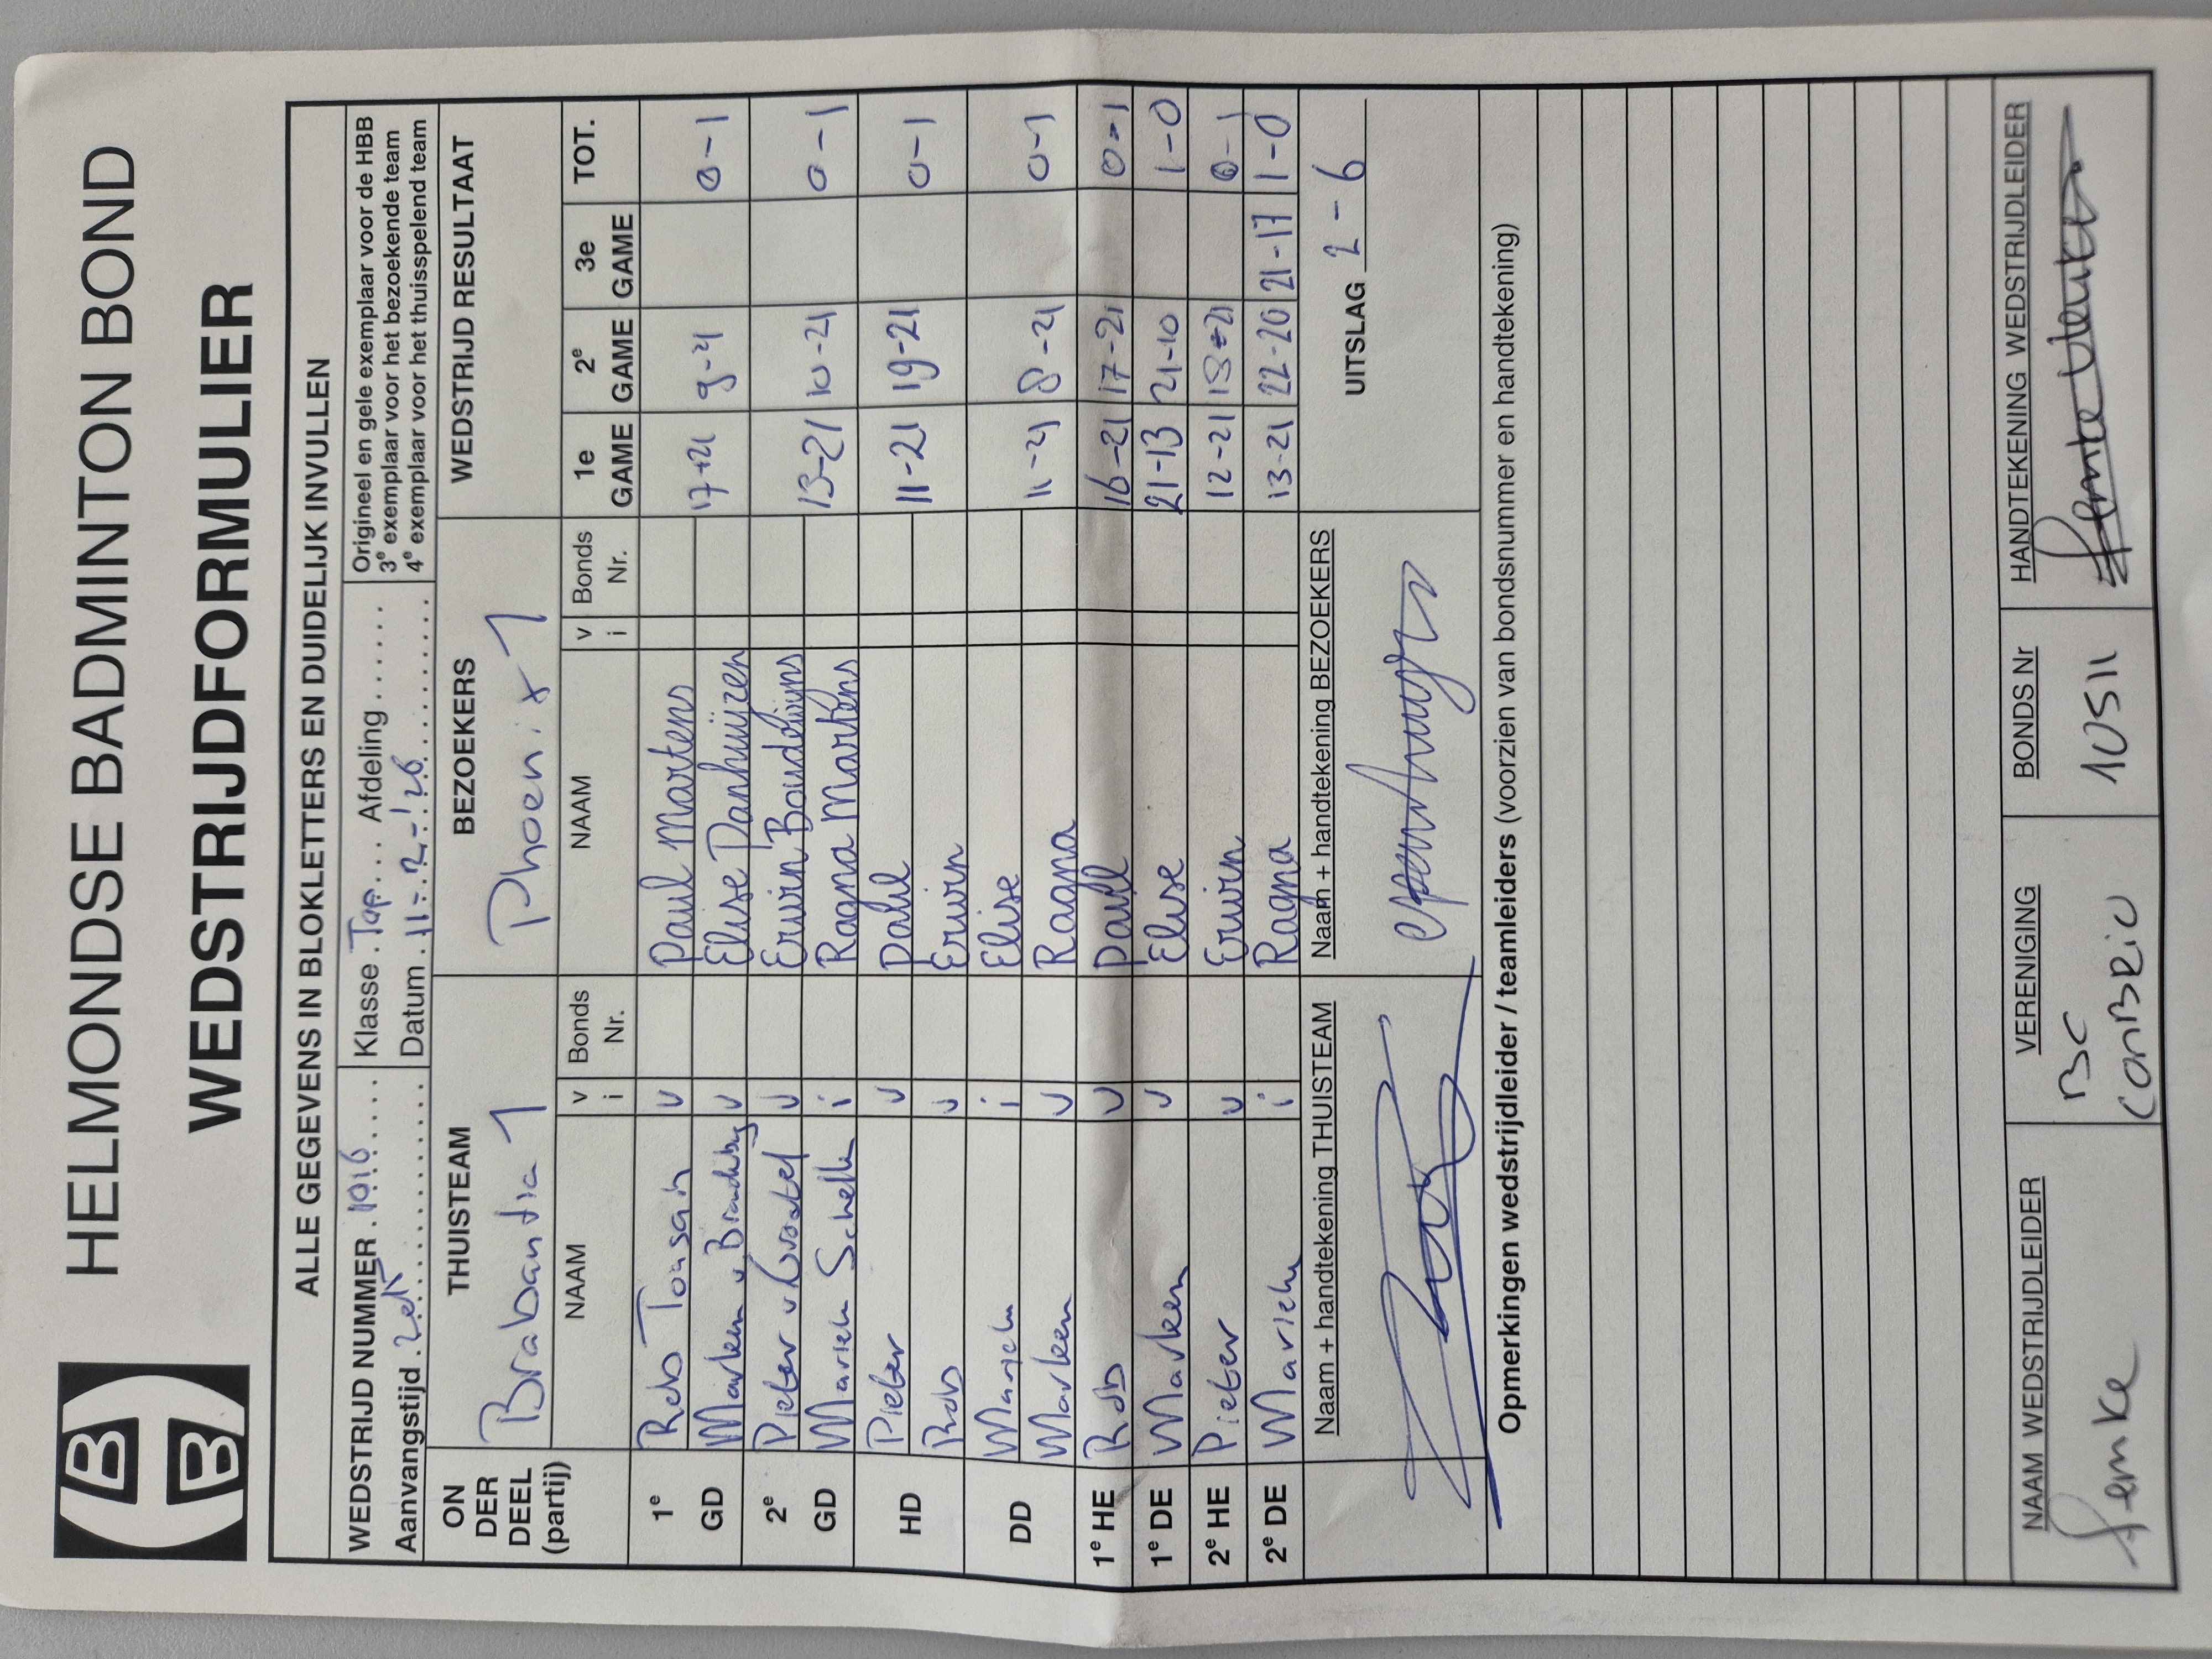 HBB
HELMONDSE BADMINTON BOND
WEDSTRIJDFORMULIER
ALLE GEGEVENS IN BLOKLETTERS EN DUIDELIJK INVULLEN
WEDSTRIJD NUMMER 1916 Klasse Top Afdeling
Aanvangstijd Datum 11-2-'26
Origineel en gele exemplaar voor de HBB
3e exemplaar voor het bezoekende team
4e exemplaar voor het thuisspelend team
ON DER DEEL (partij) THUISTEAM BEZOEKERS WEDSTRIJD RESULTAAT
Brabantia 1 Phoenix 1
NAAM v i Bonds Nr. NAAM v i Bonds Nr. 1e GAME 2e GAME 3e GAME TOT.
1e Rob v Paul Martens
GD Marleen v Elise Danhuijzen 17-21 9-21 0-1
2e Pieter v Erwin Boudewijns
GD Mariëlle i Ragna Martens 13-21 10-21 0-1
HD Pieter v Paul 11-21 19-21 0-1
Rob v Erwin
DD i Elise
Marleen v Ragna 11-21 8-21 0-1
1e HE Rob v Paul 16-21 17-21 0-1
1e DE Marleen v Elise 21-13 21-10 1-0
2e HE Pieter v Erwin 12-21 13-21 0-1
2e DE i Ragna 13-21 22-20 21-17 1-0
Naam + handtekening THUISTEAM Naam + handtekening BEZOEKERS UITSLAG 2-6
Opmerkingen wedstrijdleider / teamleiders (voorzien van bondsnummer en handtekening)
NAAM WEDSTRIJDLEIDER VERENIGING BONDS Nr HANDTEKENING WEDSTRIJDLEIDER
Femke BC ConBrio 10511